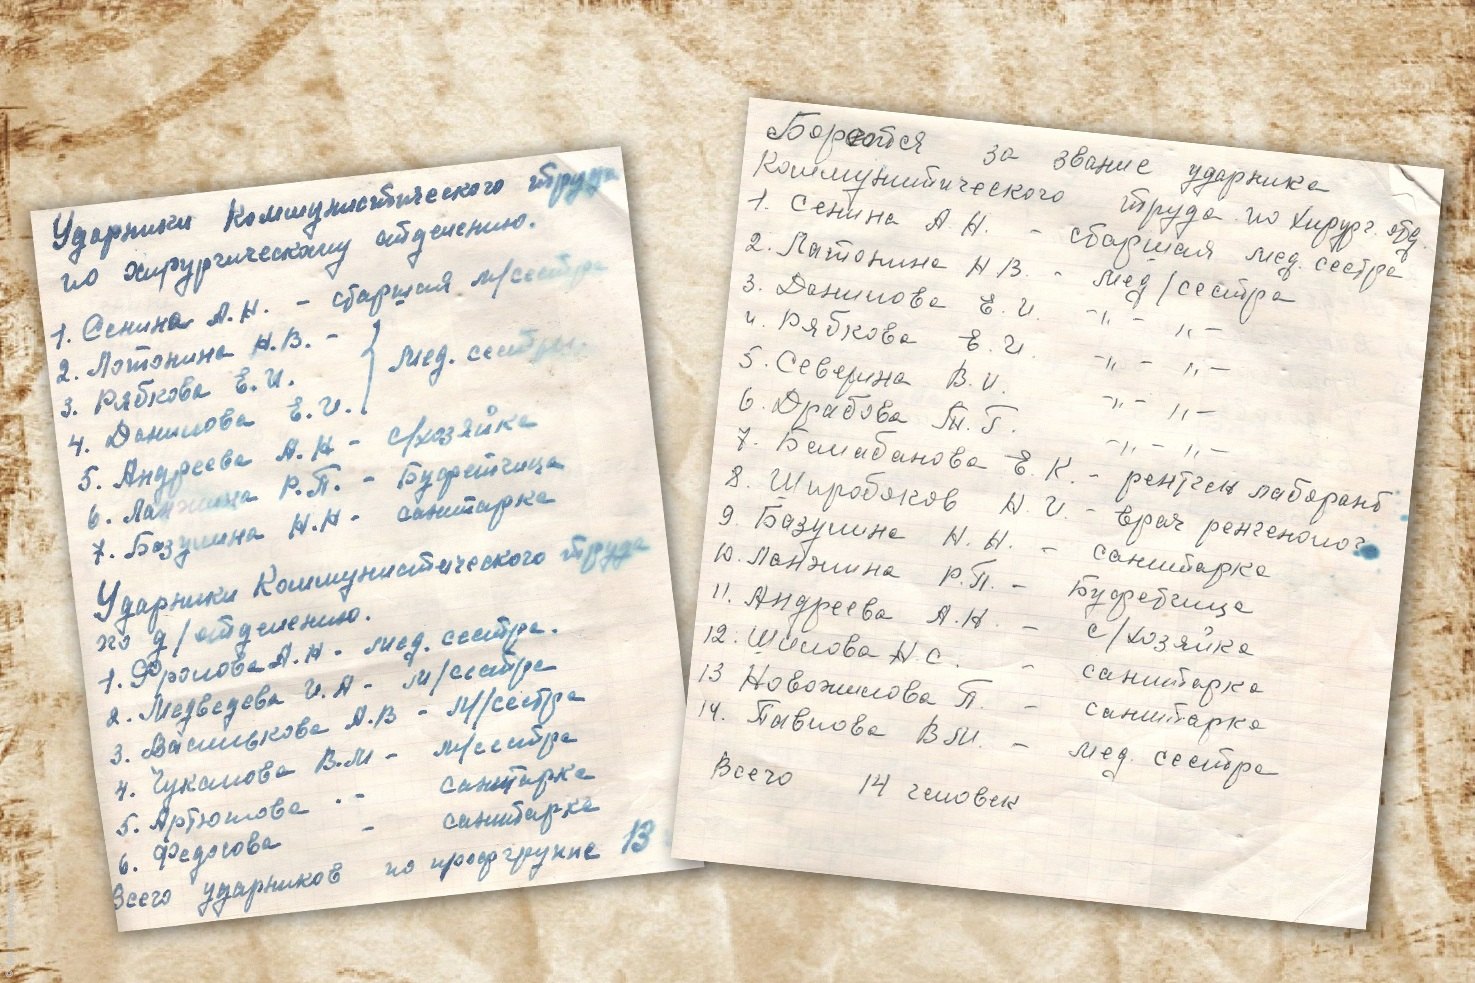 Ударники Коммунистического труда
по хирургическому отделению.
1. Сенина А.Н. - старшая м/сестра
2. Лотонина Н.В. -
3. Рябкова Е.И.
мед. сестры.
4. Данилова Е.И.
5. Андреева А.Н - с/хозяйка
6. Ланжина Р.П. - Буфетчица
7. Базулина Н.Н - санитарка
Ударники Коммунистического труда
по д/отделению.
1. Фролова А.Н - мед. сестра.
2. Медведева И.А - м/сестра
3. Василькова А.В - м/сестра
4. Чукалова В.М - м/сестра
5. Артюхова - санитарка
6. Федосова - санитарка
Всего ударников по профгруппе 13
Борются за звание ударника
Коммунистического труда по хирург. отд.
1. Сенина А.Н. - старшая мед. сестра
2. Латонина Н.В. - мед/сестра
3. Данилова Е.И. -"- "-
4. Рябкова Е.И. "- "-
5. Северина В.И. "- "-
6. Драбова Т.Г. "- "-
7. Баладанова Е.К. - рентген лаборант
8. Широбоков Н.И. - врач ренгенолог
9. Базулина Н.Н. - санитарка
10. Ланжина Р.П. - Буфетчица
11. Андреева А.Н. - с/хозяйка
12. Шилова Н.С. - санитарка
13 Новожилова П. - санитарка
14. Павлова В.М. - мед. сестра
Всего 14 человек